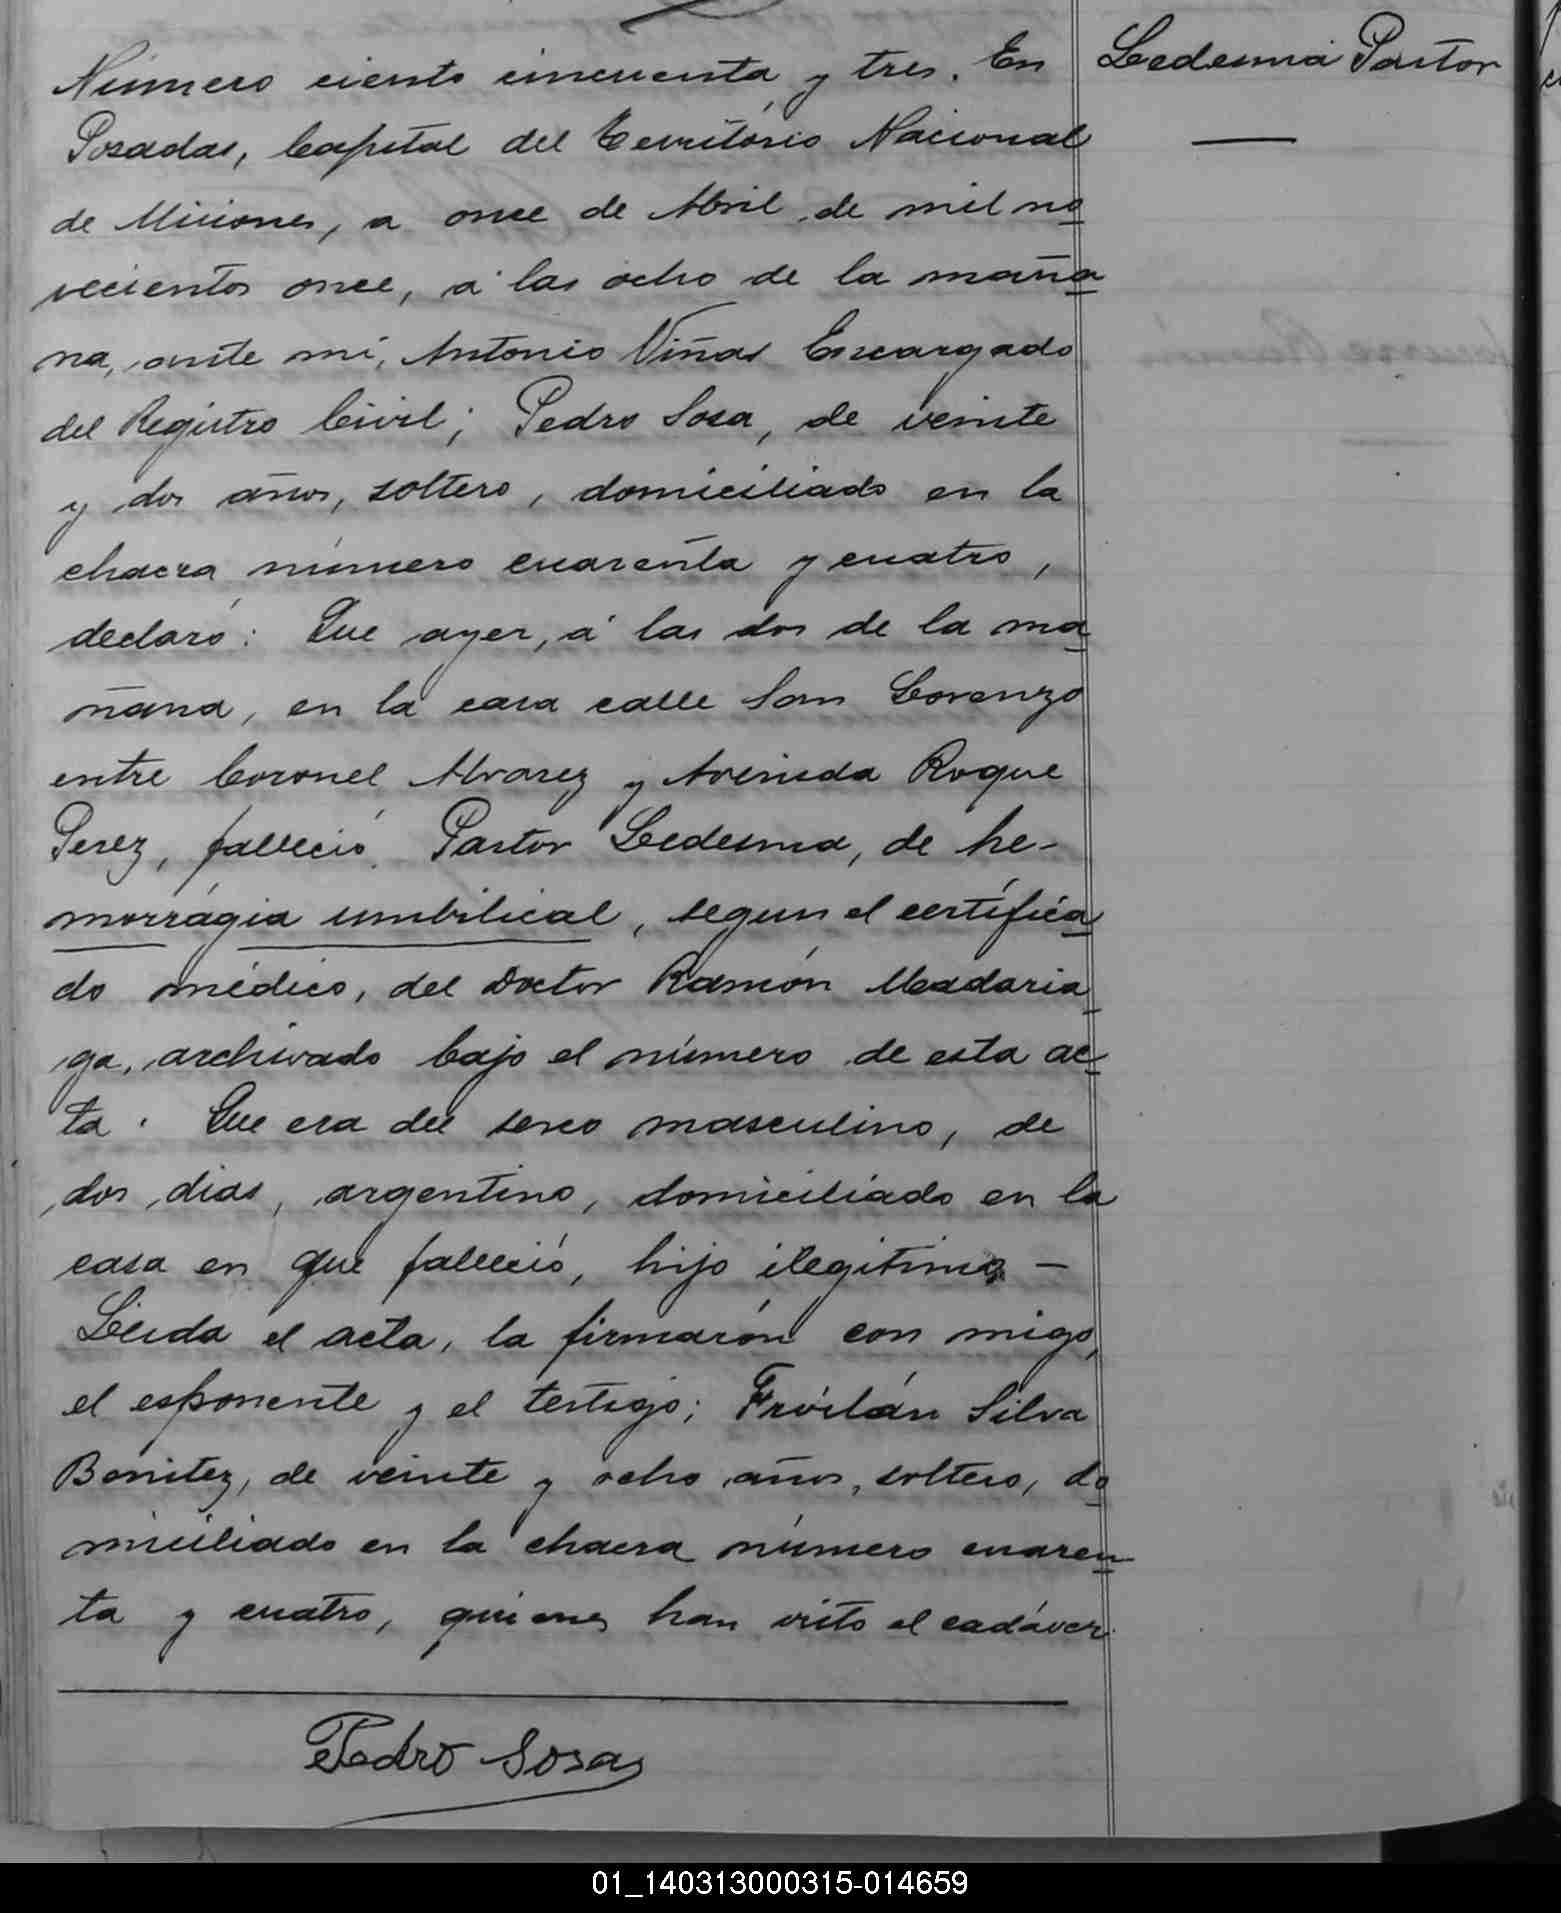 Número ciento cincuenta y tres. En
Ledesma Pastor
Posadas, Capital del Território Nacional
de Misiones, a once de Abril de mil no
vecientos once, á las ocho de la maña
na, ante mí, Antonio Viñas Encargado
del Registro Civil; Pedro Sosa, de veinte
y dos años, soltero, domiciliado en la
chacra número cuarenta y cuatro,
declaró: Que ayer, á las dos de la ma
ñana, en la casa calle San Lorenzo
entre Coronel Alvarez y Avenida Roque
Perez, falleció Pastor Ledesma, de he-
morrágia umbilical, segun el certifica
do médico, del Doctor Ramón Madaria
ga, archivado bajo el número de esta ac
ta. Que era del sexo masculino, de
dos dias, argentino, domiciliado en la
casa en que falleció, hijo ilegitimo —
Leida el acta, la firmarón con migo,
el esponente y el testigo; Froilán Silva
Benitez, de veinte y ocho años, soltero, do
miciliado en la chacra número cuaren
ta y cuatro, quienes han visto el cadáver.
Pedro Sosa
01_140313000315-014659